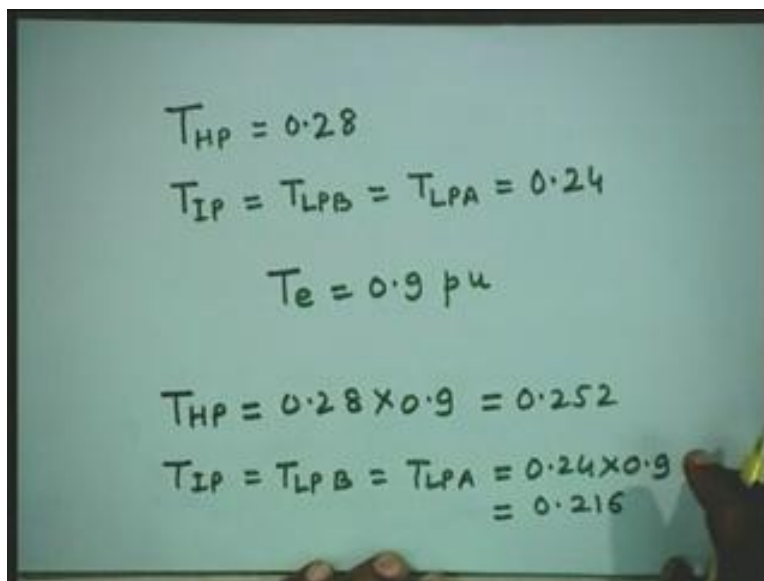 T_HP = 0.28
T_IP = T_LPB = T_LPA = 0.24
Te = 0.9 pu
T_HP = 0.28 × 0.9 = 0.252
T_IP = T_LPB = T_LPA = 0.24 × 0.9
= 0.216